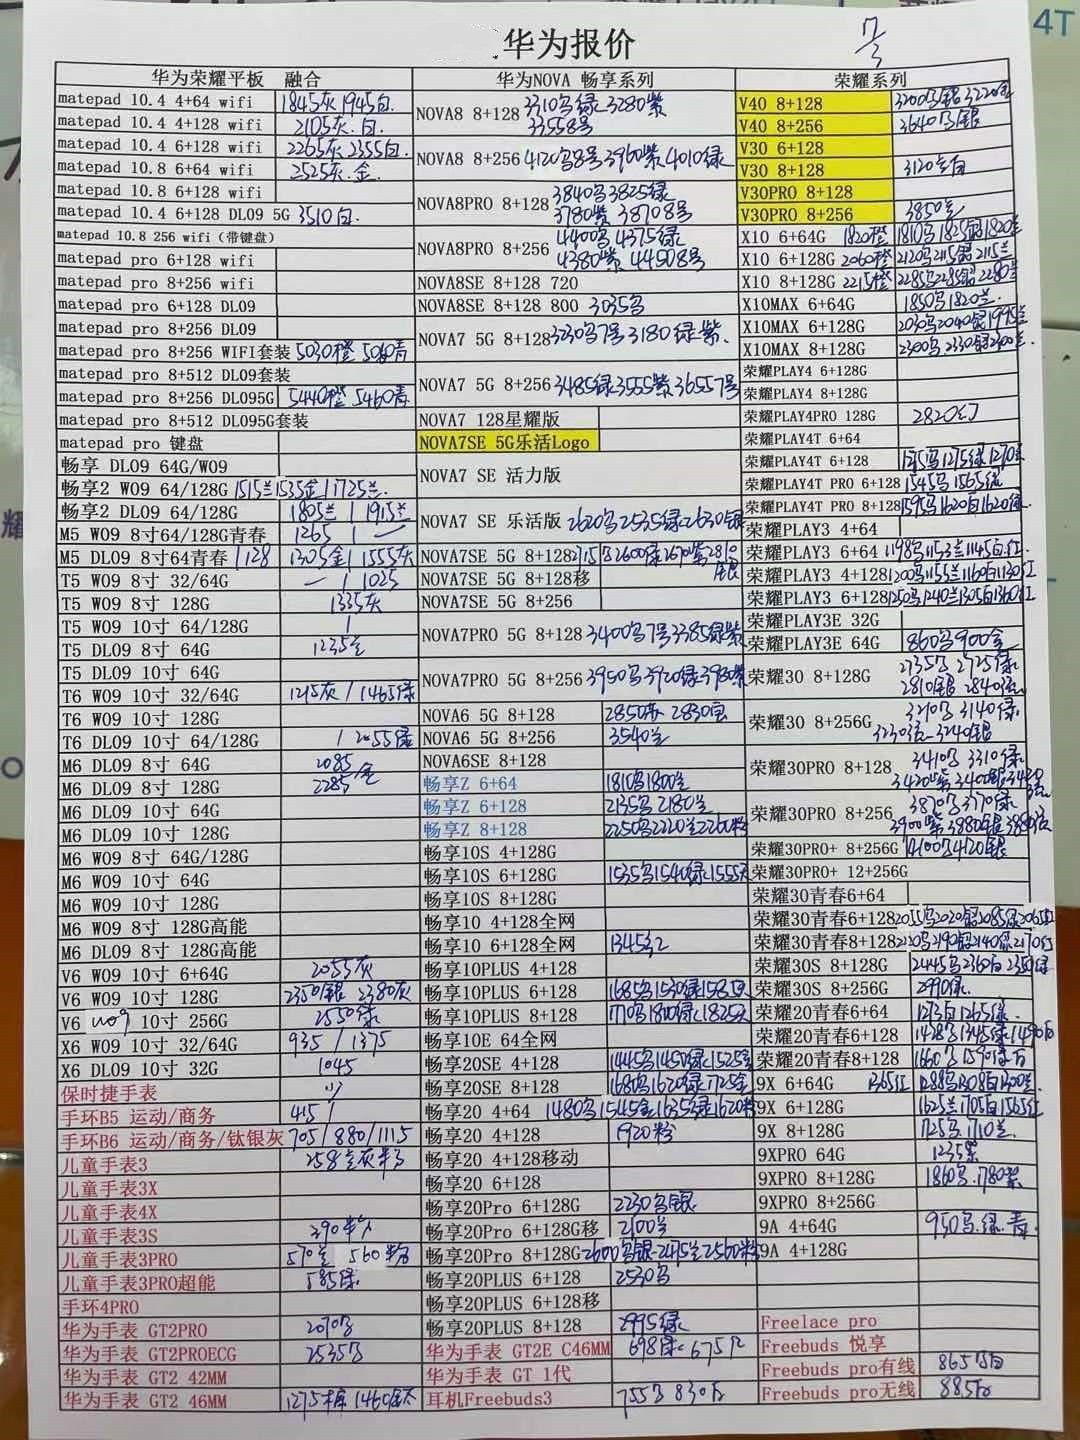 华为报价
华为荣耀平板 融合
matepad 10.4 4+64 wifi 1845灰 1945白.
matepad 10.4 4+128 wifi 2105灰.白.
matepad 10.4 6+128 wifi 2265灰 2355白.
matepad 10.8 6+64 wifi 2525灰.金.
matepad 10.8 6+128 wifi
matepad 10.4 6+128 DL09 5G 3510白.
matepad 10.8 256 wifi(带键盘)
matepad pro 6+128 wifi
matepad pro 8+256 wifi
matepad pro 6+128 DL09
matepad pro 8+256 DL09
matepad pro 8+256 WIFI套装 5030橙 5060青
matepad pro 8+512 DL09套装
matepad pro 8+256 DL095G 5440橙 5460青
matepad pro 8+512 DL095G套装
matepad pro 键盘
畅享 DL09 64G/W09
畅享2 W09 64/128G 1515兰1535金/1725兰.
畅享2 DL09 64/128G 1805兰/1915兰
M5 W09 8寸64/128G青春 1265 / —
M5 DL09 8寸64青春/128 1305金/1555灰
T5 W09 8寸 32/64G — / 1025
T5 W09 8寸 128G 1335灰
T5 W09 10寸 64/128G /
T5 DL09 8寸 64G 1235兰
T5 DL09 10寸 64G
T6 W09 10寸 32/64G 1215灰/1465绿
T6 W09 10寸 128G
T6 DL09 10寸 64/128G / 2055绿
M6 DL09 8寸 64G 2085
M6 DL09 8寸 128G 2285/金
M6 DL09 10寸 64G
M6 DL09 10寸 128G
M6 W09 8寸 64G/128G
M6 W09 10寸 64G
M6 W09 10寸 128G
M6 W09 8寸 128G高能
M6 DL09 8寸 128G高能
V6 W09 10寸 6+64G 2055灰
V6 W09 10寸 128G 2350银 2380灰
V6 W09 10寸 256G 2550绿
X6 W09 10寸 32/64G 935 / 1375
X6 DL09 10寸 32G 1045
保时捷手表
手环B5 运动/商务 415 /
手环B6 运动/商务/钛银灰 705/880/1115
儿童手表3 258兰灰粉
儿童手表3X
儿童手表4X
儿童手表3S 390粉
儿童手表3PRO 570兰 560粉
儿童手表3PRO超能 585绿
手环4PRO
华为手表 GT2PRO 2070
华为手表 GT2PROECG 2535
华为手表 GT2 42MM
华为手表 GT2 46MM 1275棕 1460钛
华为NOVA 畅享系列
NOVA8 8+128 3310乌绿 3280紫
33558号
NOVA8 8+256 4120乌8号 3960紫 4010绿
NOVA8PRO 8+128 3840乌 3825绿
3780紫 38708号
NOVA8PRO 8+256 4400乌 4375绿
4380紫 44508号
NOVA8SE 8+128 720
NOVA8SE 8+128 800 3035乌
NOVA7 5G 8+128 3230乌7号 3180绿紫.
NOVA7 5G 8+256 3485绿 3555紫 36557号
NOVA7 128星耀版
NOVA7SE 5G乐活Logo
NOVA7 SE 活力版
NOVA7 SE 乐活版 2620乌 2535绿 2630银
NOVA7SE 5G 8+128 2600绿 2810银
NOVA7SE 5G 8+128移
NOVA7SE 5G 8+256
NOVA7PRO 5G 8+128 3400乌7号 3385绿紫
NOVA7PRO 5G 8+256 3950乌 3920绿 3980紫
NOVA6 5G 8+128 2850灰 2830
NOVA6 5G 8+256 3540兰
NOVA6SE 8+128
畅享Z 6+64 1810乌1800兰
畅享Z 6+128 2135乌 2180兰
畅享Z 8+128 2250乌2220兰2260粉
畅享10S 4+128G
畅享10S 6+128G 1535乌1540绿1555天
畅享10S 8+128G
畅享10 4+128全网
畅享10 6+128全网 1345红
畅享10PLUS 4+128
畅享10PLUS 6+128 1685乌1530绿1585天
畅享10PLUS 8+128 1770乌1810绿1825天
畅享10E 64全网
畅享20SE 4+128 1445乌1450绿1525金
畅享20SE 8+128 1680乌1620绿1725金
畅享20 4+64 1480乌1545金1635绿1620粉
畅享20 4+128 1920粉
畅享20 4+128移动
畅享20 6+128
畅享20Pro 6+128G 2230乌银
畅享20Pro 6+128G移 2100兰
畅享20Pro 8+128G 2600乌银 2475兰 2560粉
畅享20PLUS 6+128 2530乌
畅享20PLUS 6+128移
畅享20PLUS 8+128 2995绿
华为手表 GT2E C46MM 698绿. 675
华为手表 GT 1代
耳机Freebuds3 755乌 830白
7/3
荣耀系列
V40 8+128 3200乌银 3220
V40 8+256 3640乌银
V30 6+128
V30 8+128 3120兰白
V30PRO 8+128
V30PRO 8+256 3850兰
X10 6+64G 1820橙 1810乌 1825银 1820兰
X10 6+128G 2060橙 2120乌 2115银 2115兰
X10 8+128G 2215橙 2285乌 2285银 2280兰
X10MAX 6+64G 1850乌 1820兰.
X10MAX 6+128G 2030乌 2040银 1995兰
X10MAX 8+128G 2300乌. 2330银 2300兰.
荣耀PLAY4 6+128G
荣耀PLAY4 8+128G
荣耀PLAY4PRO 128G 2820幻
荣耀PLAY4T 6+64
荣耀PLAY4T 6+128 1275乌1275绿1270兰
荣耀PLAY4T PRO 6+128 1545乌 1565绿
荣耀PLAY4T PRO 8+128 1595乌1620白1620绿
荣耀PLAY3 4+64
荣耀PLAY3 6+64 1198乌1153兰1145白.红.
荣耀PLAY3 4+128 1200乌1155兰1160白1130红
荣耀PLAY3 6+128 1250乌1240兰1305白1360红
荣耀PLAY3E 32G
荣耀PLAY3E 64G 860乌 900金
荣耀30 8+128G 2735乌 2725绿
2810银 2840
荣耀30 8+256G 3210乌 3140绿
3230 3240银
荣耀30PRO 8+128 3410乌 3310绿
3420紫 3400银
荣耀30PRO 8+256 3870乌 3770绿
3900紫 3880银
荣耀30PRO+ 8+256G 4100乌4120银
荣耀30PRO+ 12+256G
荣耀30青春6+64
荣耀30青春6+128 2055乌2020银2085绿2065红
荣耀30青春8+128 2120乌2190银2140绿2170红
荣耀30S 8+128G 2445乌2360白2350绿
荣耀30S 8+256G 2990绿.
荣耀20青春6+64 1273白1265绿.
荣耀20青春6+128 1428乌1345绿1490白
荣耀20青春8+128 1660乌1590绿白
9X 6+64G 1365红 1288乌1308白1300兰.
9X 6+128G 1625兰1705白1565红
9X 8+128G 1725乌.1710兰.
9XPRO 64G 1235紫
9XPRO 8+128G 1860乌.1780紫
9XPRO 8+256G
9A 4+64G 950乌.绿.青.
9A 4+128G
Freelace pro
Freebuds 悦享
Freebuds pro有线 865乌白
Freebuds pro无线 885白